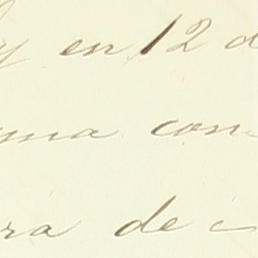 y en 12 d
ma con
ra de